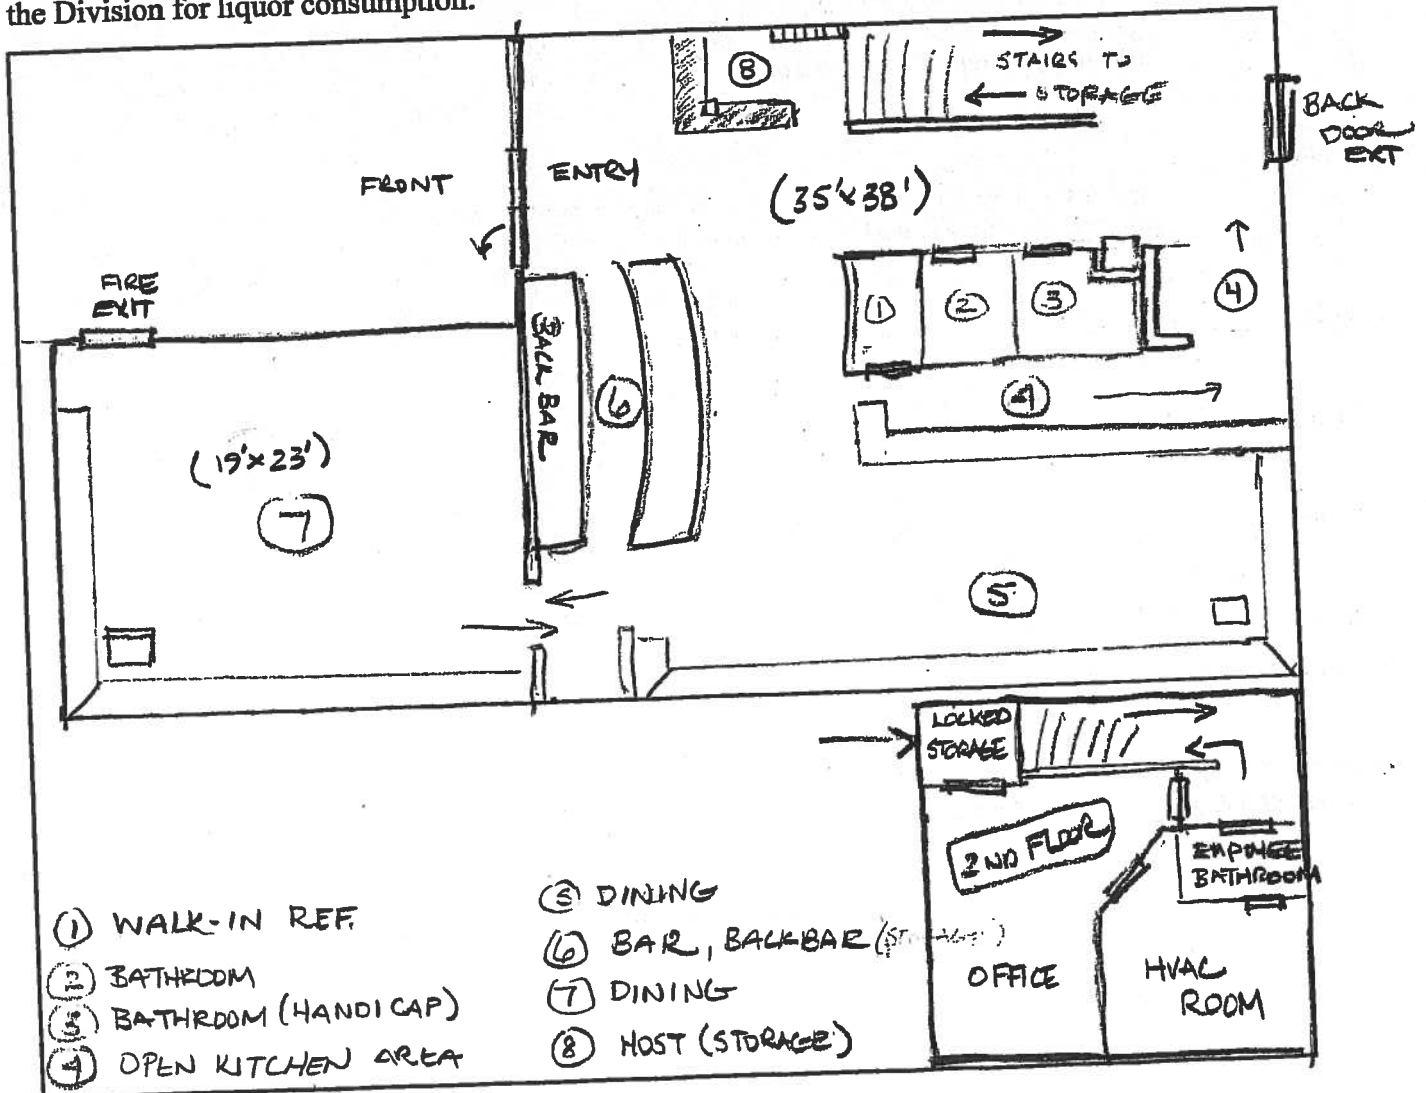 the Division for liquor consumption.
8
STAIRS TO
STORAGE
BACK
DOOR
EXT
FRONT
ENTRY
(35'x38')
FIRE
EXIT
1
2
3
4
BACK BAR
6
4
(19'x23')
7
5
LOCKED
STORAGE
2ND FLOOR
EMPLYEE
BATHROOM
OFFICE
HVAC
ROOM
1 WALK-IN REF.
2 BATHROOM
3 BATHROOM (HANDICAP)
4 OPEN KITCHEN AREA
5 DINING
6 BAR, BACKBAR (STORAGE)
7 DINING
8 HOST (STORAGE)